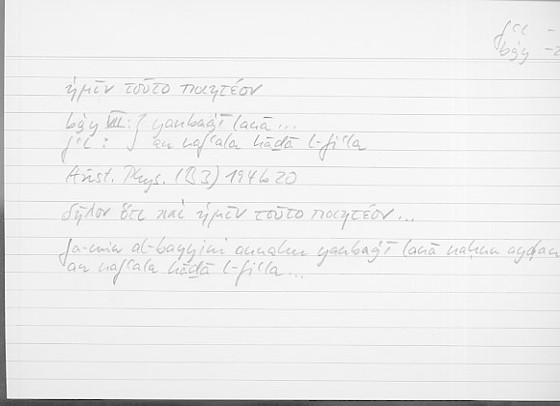 fʿl -
bġy -2
ἡμῖν τοῦτο ποιητέον
bġy VII: } yanbaġī lanā ...
fʿl : } an nafʿala hāḏā l-fiʿla
Arist. Phys. (B3) 194b20
δῆλον ὅτι καὶ ἡμῖν τοῦτο ποιητέον ...
fa-min al-bayyini annahu yanbaġī lanā naḥnu ayḍan
an nafʿala hāḏā l-fiʿla ...